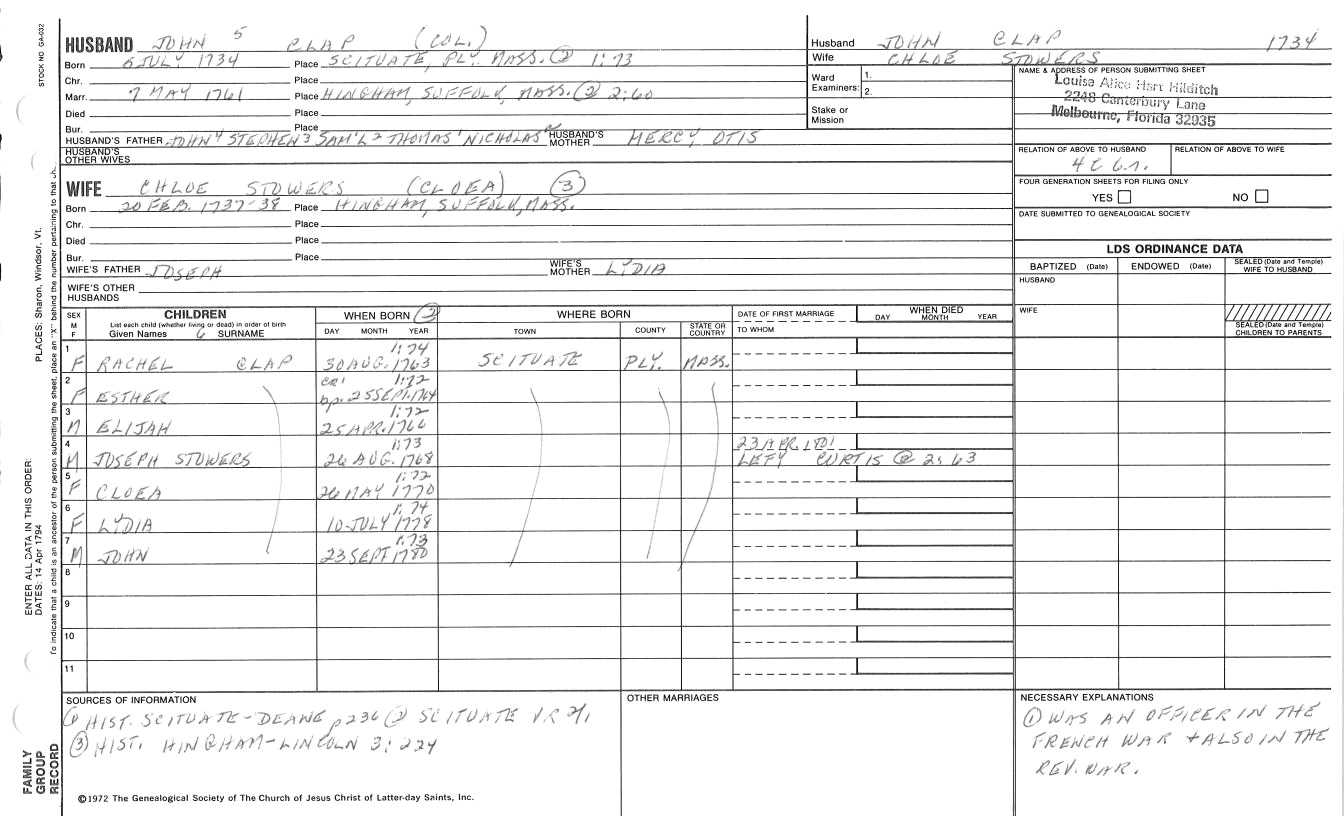 STOCK NO GA-032
PLACES: Sharon, Windsor, Vt.
ENTER ALL DATA IN THIS ORDER:
DATES: 14 Apr 1794
To indicate that a child is an ancestor of the person submitting the sheet, place an "X" behind the number pertaining to that
FAMILY GROUP RECORD
HUSBAND JOHN 5 CLAP (COL.)
Born 6 JULY 1734 Place SCITUATE, PLY. MASS. ② 1:73
Chr. Place
Marr. 7 MAY 1761 Place HINGHAM, SUFFOLK, MASS. ② 2:60
Died Place
Bur. Place
HUSBAND'S FATHER JOHN 4 STEPHEN 3 SAM'L 2 THOMAS 1 NICHOLAS HUSBAND'S MOTHER MERCY OTIS
HUSBAND'S OTHER WIVES
WIFE CHLOE STOWERS (CLOEA) ③
Born 20 FEB. 1737-38 Place HINGHAM, SUFFOLK, MASS.
Chr. Place
Died Place
Bur. Place
WIFE'S FATHER JOSEPH WIFE'S MOTHER LYDIA
WIFE'S OTHER HUSBANDS
Husband JOHN CLAP 1734
Wife CHLOE STOWERS
Ward Examiners: 1. 2.
Stake or Mission
NAME & ADDRESS OF PERSON SUBMITTING SHEET
Louisa Alice Hart Hilditch
2248 Canterbury Lane
Melbourne, Florida 32935
RELATION OF ABOVE TO HUSBAND RELATION OF ABOVE TO WIFE
4C 6r.
FOUR GENERATION SHEETS FOR FILING ONLY
YES NO
DATE SUBMITTED TO GENEALOGICAL SOCIETY
LDS ORDINANCE DATA
BAPTIZED (Date) ENDOWED (Date) SEALED (Date and Temple) WIFE TO HUSBAND
HUSBAND
WIFE
SEALED (Date and Temple) CHILDREN TO PARENTS
SEX M F CHILDREN WHEN BORN ② WHERE BORN DATE OF FIRST MARRIAGE WHEN DIED
List each child (whether living or dead) in order of birth
Given Names SURNAME DAY MONTH YEAR TOWN COUNTY STATE OR COUNTRY TO WHOM DAY MONTH YEAR
1 1:74
F RACHEL CLAP 30 AUG. 1763 SCITUATE PLY. MASS.
2 CR1 1:72
F ESTHER bp. 25 SEPT. 1764
3 1:72
M ELIJAH 25 APR. 1766
4 1:73 23 APR. 1801
M JOSEPH STOWERS 26 AUG. 1768 LEFY CURTIS ② 2:63
5 1:72
F CLOEA 26 MAY 1770
6 1:74
F LYDIA 10 JULY 1778
7 1:73
M JOHN 23 SEPT 1780
8
9
10
11
SOURCES OF INFORMATION
① HIST. SCITUATE-DEANE p 236 ② SCITUATE V.R 2/1
③ HIST. HINGHAM-LINCOLN 3:224
©1972 The Genealogical Society of The Church of Jesus Christ of Latter-day Saints, Inc.
OTHER MARRIAGES
NECESSARY EXPLANATIONS
① WAS AN OFFICER IN THE
FRENCH WAR + ALSO IN THE
REV. WAR.